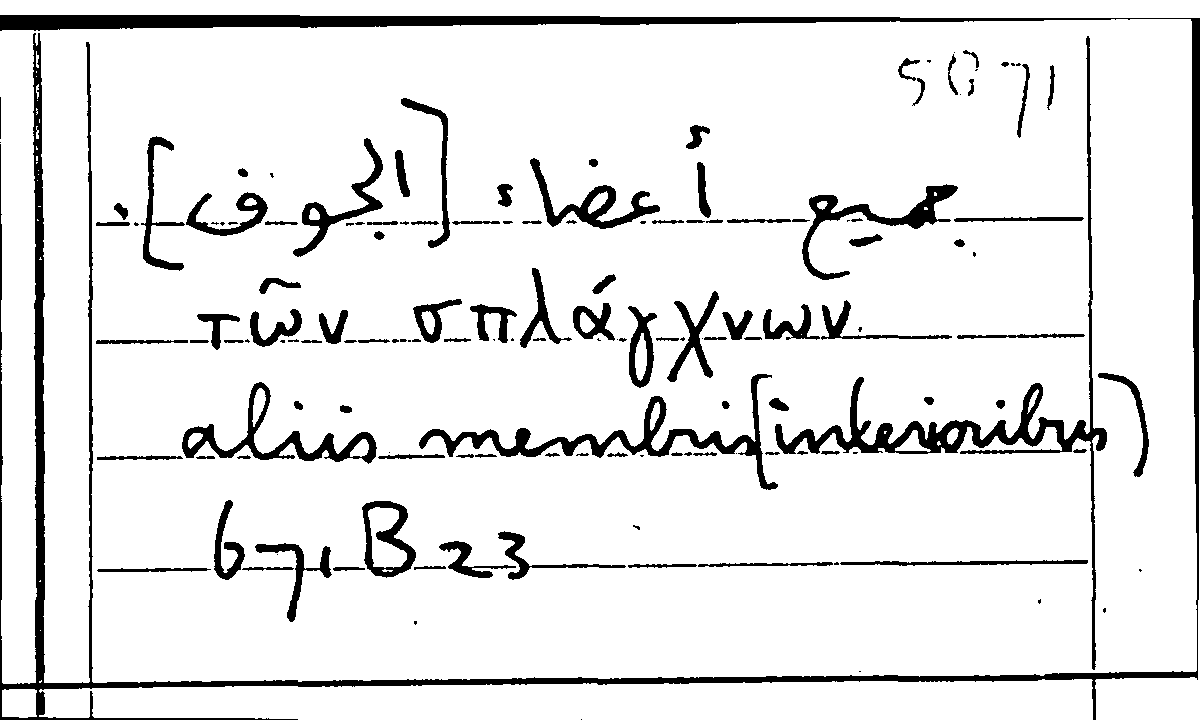 5071
جميع أعضاء [الجوف].
τῶν σπλάγχνων
aliis membris [interioribus)
671 B 23